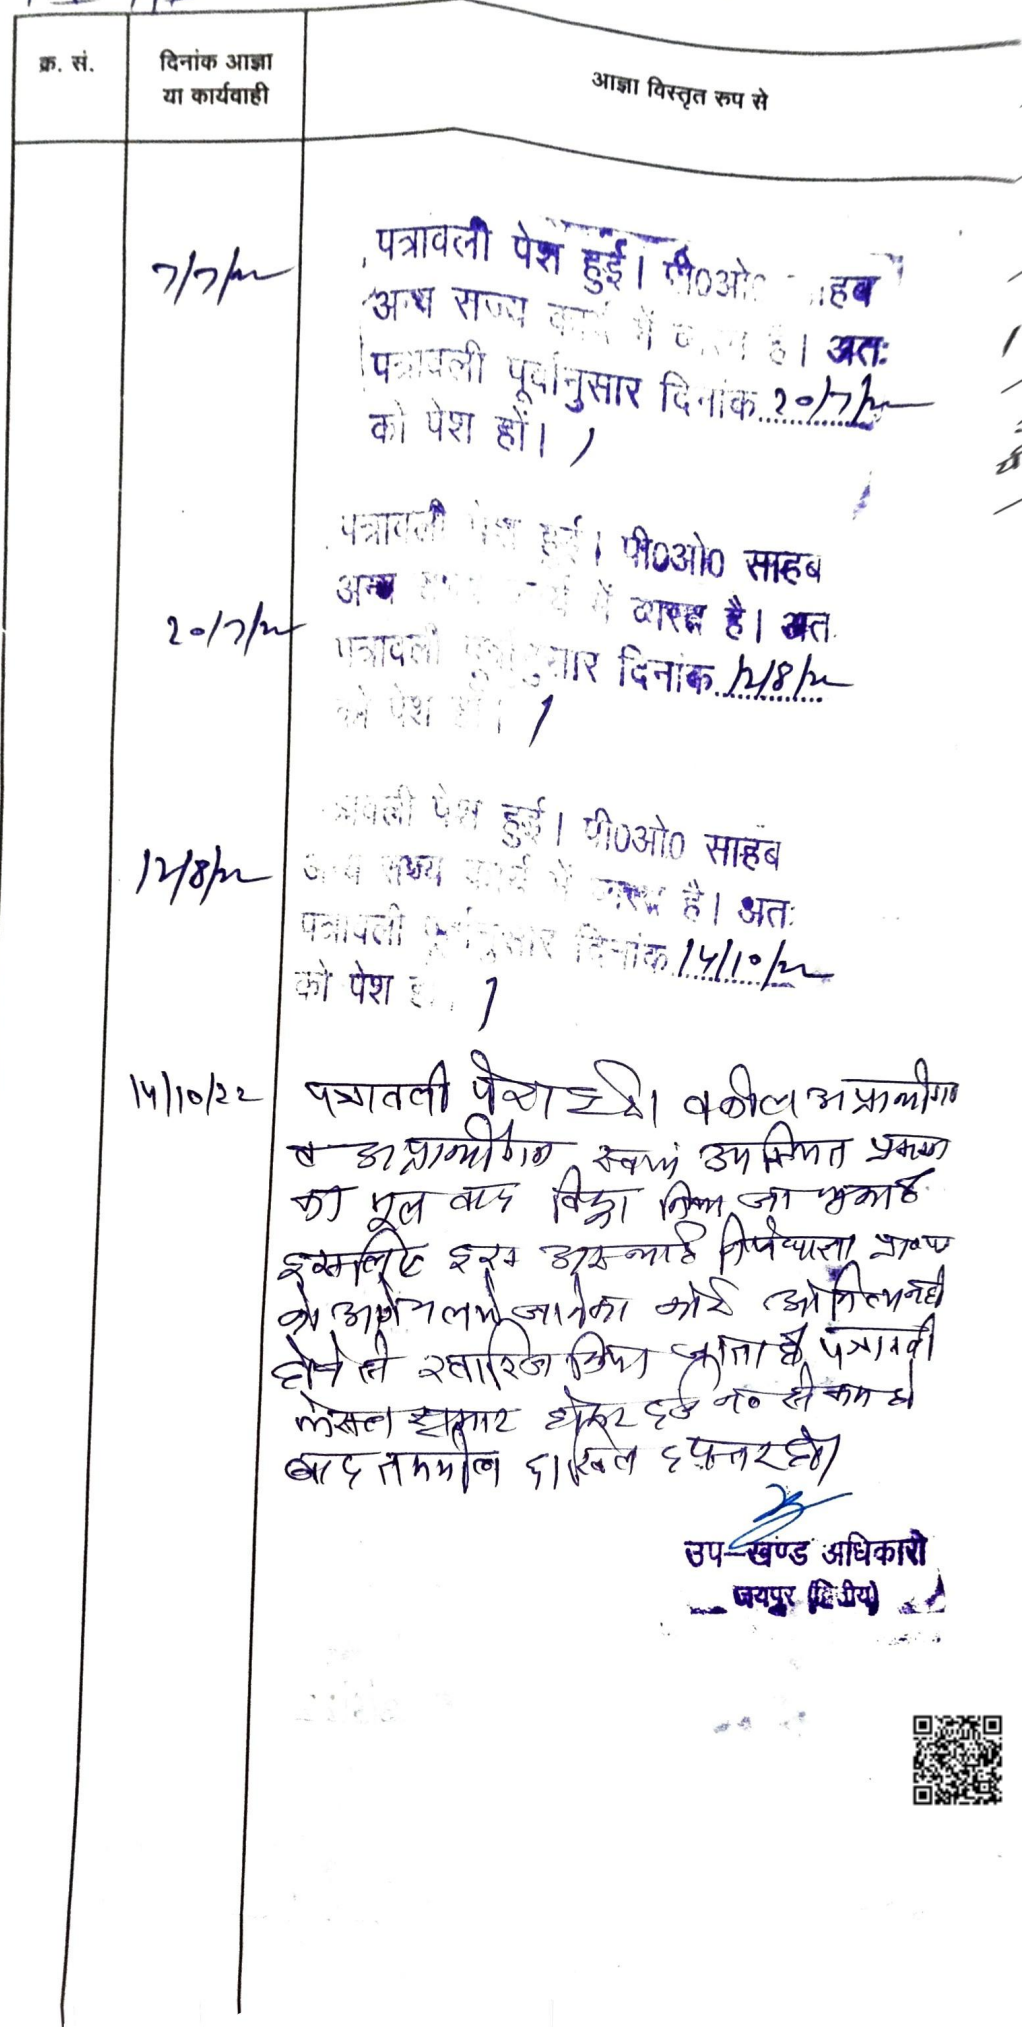 क्र. सं.
दिनांक आज्ञा
या कार्यवाही
आज्ञा विस्तृत रुप से
7/7/22
पत्रावली पेश हुई। पी0ओ0 साहब
अन्य राज्य कार्य में व्यस्त है। अतः
पत्रावली पूर्वानुसार दिनांक 20/7/22
को पेश हों।
20/7/22
पत्रावली पेश हुई। पी0ओ0 साहब
अन्य कार्य में व्यस्त है। अत
पत्रावली पूर्वानुसार दिनांक 12/8/22
को पेश हों।
12/8/22
पत्रावली पेश हुई। पी0ओ0 साहब
अन्य राज्य कार्य में व्यस्त है। अतः
पत्रावली पूर्वानुसार दिनांक 14/10/22
को पेश
14/10/22
पत्रावली पेश हुई। वकील अप्रार्थीगण
व अप्रार्थीगण स्वयं उपस्थित प्रकरण
का मूल वाद किया जा चुका है
इसलिए इस अस्थाई निषेधाज्ञा
को आगे चलाये जाने का कोई औचित्य नही
होने से खारिज किया जाता है पत्रावली
फैसल शुमार होकर दर्ज नं० से कम हो
बाद तकमील दाखिल दफ्तर हो।
उप-खण्ड अधिकारी
जयपुर (द्वितीय)